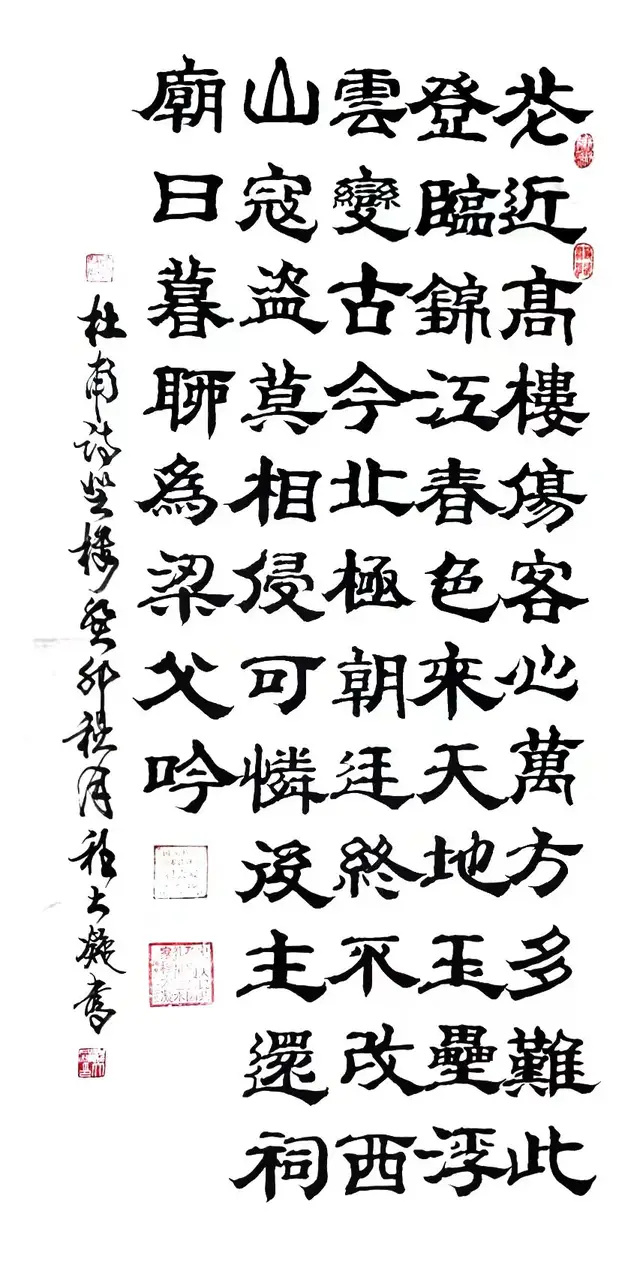 花近高樓傷客心萬方多難此
登臨錦江春色來天地玉壘浮
雲變古今北極朝廷終不改西
山寇盗莫相侵可憐後主還祠
廟日暮聊爲梁父吟
杜甫诗登楼癸卯月书